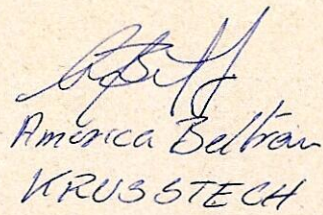 America Beltran
KRUSSTECH